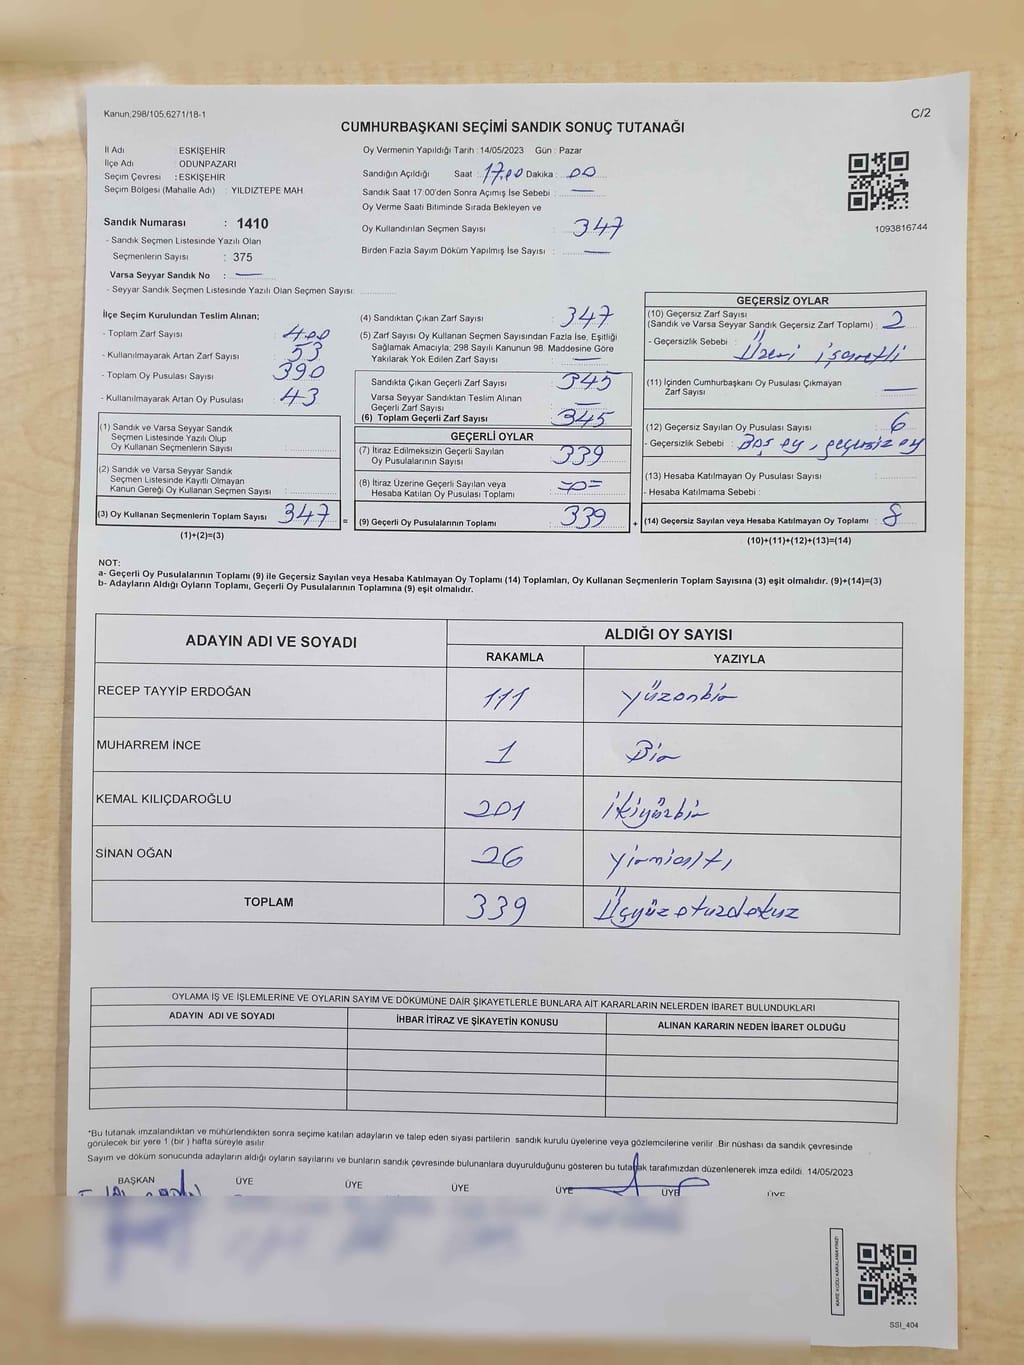 Kanun;298/105;6271/18-1
C/2
CUMHURBAŞKANI SEÇİMİ SANDIK SONUÇ TUTANAĞI
İl Adı : ESKİŞEHİR
İlçe Adı : ODUNPAZARI
Seçim Çevresi : ESKİŞEHİR
Seçim Bölgesi (Mahalle Adı) : YILDIZTEPE MAH.
Sandık Numarası : 1410
- Sandık Seçmen Listesinde Yazılı Olan
Seçmenlerin Sayısı : 375
Varsa Seyyar Sandık No : —
- Seyyar Sandık Seçmen Listesinde Yazılı Olan Seçmen Sayısı:
Oy Vermenin Yapıldığı Tarih : 14/05/2023 Gün : Pazar
Sandığın Açıldığı Saat : 17.00 Dakika : 00
Sandık Saat 17:00'den Sonra Açımış İse Sebebi : —
Oy Verme Saati Bitiminde Sırada Bekleyen ve
Oy Kullandırılan Seçmen Sayısı : 347
Birden Fazla Sayım Döküm Yapılmış İse Sayısı : —
1093816744
İlçe Seçim Kurulundan Teslim Alınan;
- Toplam Zarf Sayısı : 400
- Kullanılmayarak Artan Zarf Sayısı : 53
- Toplam Oy Pusulası Sayısı : 390
- Kullanılmayarak Artan Oy Pusulası : 43
(1) Sandık ve Varsa Seyyar Sandık
Seçmen Listesinde Yazılı Olup
Oy Kullanan Seçmenlerin Sayısı :
(2) Sandık ve Varsa Seyyar Sandık
Seçmen Listesinde Kayıtlı Olmayan
Kanun Gereği Oy Kullanan Seçmen Sayısı :
(3) Oy Kullanan Seçmenlerin Toplam Sayısı : 347 =
(1)+(2)=(3)
(4) Sandıktan Çıkan Zarf Sayısı : 347
(5) Zarf Sayısı Oy Kullanan Seçmen Sayısından Fazla İse, Eşitliği
Sağlamak Amacıyla; 298 Sayılı Kanunun 98. Maddesine Göre
Yakılarak Yok Edilen Zarf Sayısı : —
Sandıkta Çıkan Geçerli Zarf Sayısı : 345
Varsa Seyyar Sandıktan Teslim Alınan
Geçerli Zarf Sayısı : —
(6) Toplam Geçerli Zarf Sayısı : 345
GEÇERLİ OYLAR
(7) İtiraz Edilmeksizin Geçerli Sayılan
Oy Pusulalarının Sayısı : 339
(8) İtiraz Üzerine Geçerli Sayılan veya
Hesaba Katılan Oy Pusulası Toplamı :
(9) Geçerli Oy Pusulalarının Toplamı : 339 +
GEÇERSİZ OYLAR
(10) Geçersiz Zarf Sayısı
(Sandık ve Varsa Seyyar Sandık Geçersiz Zarf Toplamı) : 2
- Geçersizlik Sebebi : Üzeri işaretli
(11) İçinden Cumhurbaşkanı Oy Pusulası Çıkmayan
Zarf Sayısı : —
(12) Geçersiz Sayılan Oy Pusulası Sayısı : 6
- Geçersizlik Sebebi : Boş oy, geçersiz oy
(13) Hesaba Katılmayan Oy Pusulası Sayısı :
- Hesaba Katılmama Sebebi :
(14) Geçersiz Sayılan veya Hesaba Katılmayan Oy Toplamı : 8
(10)+(11)+(12)+(13)=(14)
NOT:
a- Geçerli Oy Pusulalarının Toplamı (9) ile Geçersiz Sayılan veya Hesaba Katılmayan Oy Toplamı (14) Toplamları, Oy Kullanan Seçmenlerin Toplam Sayısına (3) eşit olmalıdır. (9)+(14)=(3)
b- Adayların Aldığı Oyların Toplamı, Geçerli Oy Pusulalarının Toplamına (9) eşit olmalıdır.
ADAYIN ADI VE SOYADI ALDIĞI OY SAYISI
RAKAMLA YAZIYLA
RECEP TAYYİP ERDOĞAN 111 Yüzonbir
MUHARREM İNCE 1 Bir
KEMAL KILIÇDAROĞLU 201 ikiyüzbir
SİNAN OĞAN 26 yirmialtı
TOPLAM 339 Üçyüzotuzdokuz
OYLAMA İŞ VE İŞLEMLERİNE VE OYLARIN SAYIM VE DÖKÜMÜNE DAİR ŞİKAYETLERLE BUNLARA AİT KARARLARIN NELERDEN İBARET BULUNDUKLARI
ADAYIN ADI VE SOYADI İHBAR İTİRAZ VE ŞİKAYETİN KONUSU ALINAN KARARIN NEDEN İBARET OLDUĞU
*Bu tutanak imzalandıktan ve mühürlendikten sonra seçime katılan adayların ve talep eden siyasi partilerin sandık kurulu üyelerine veya gözlemcilerine verilir. Bir nüshası da sandık çevresinde
görülecek bir yere 1 (bir ) hafta süreyle asılır.
Sayım ve döküm sonucunda adayların aldığı oyların sayılarını ve bunların sandık çevresinde bulunanlara duyurulduğunu gösteren bu tutanak tarafımızdan düzenlenerek imza edildi. 14/05/2023
BAŞKAN ÜYE ÜYE ÜYE ÜYE ÜYE ÜYE
KARE KODU KARALAMAYINIZ!
SSI_404